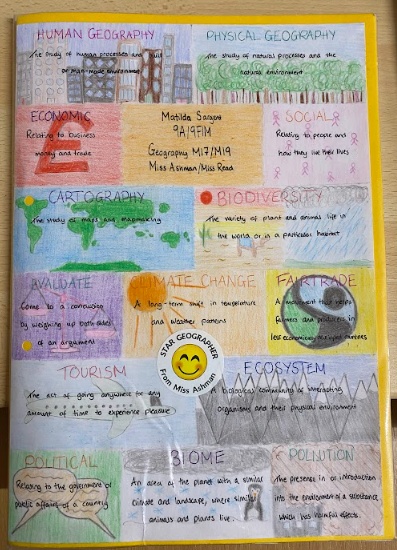 HUMAN GEOGRAPHY
The study of human processes and built
or man-made environment
PHYSICAL GEOGRAPHY
The study of natural processes and the
natural environment
ECONOMIC
Relating to business
money and trade
Matilda Sargent
9A/9FIM
Geography M17/M19
Miss Ashman/Miss Read
SOCIAL
Relating to people and
how they live their lives
CARTOGRAPHY
The study of maps and mapmaking
BIODIVERSITY
The variety of plant and animal life in
the world or in a particular habitat
EVALUATE
Come to a conclusion
by weighing up both sides
of an argument
CLIMATE CHANGE
A long-term shift in temperature
and weather patterns
FAIRTRADE
A movement that helps
farmers and producers in
less economically countries
STAR GEOGRAPHER
From Miss Ashman
TOURISM
The act of going anywhere for any
amount of time to experience pleasure
ECOSYSTEM
A biological community of interacting
organisms and their physical environment
POLITICAL
Relating to the government or
public affairs of a country
BIOME
An area of the planet with a similar
climate and landscape, where similar
animals and plants live.
POLLUTION
The presence in or introduction
into the environment of a substance,
which has harmful effects.